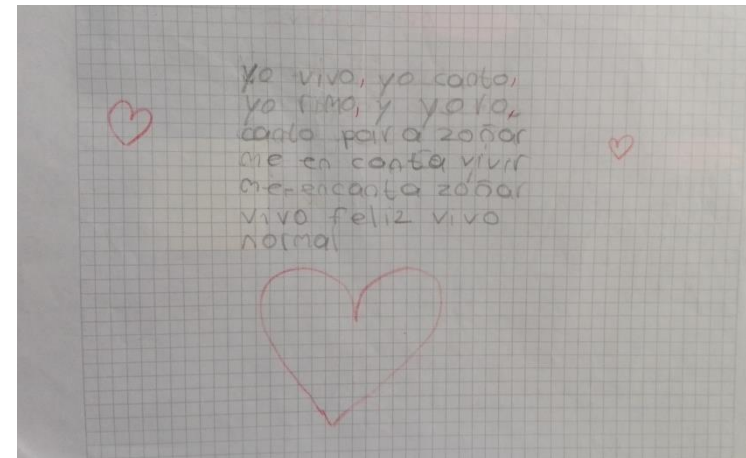 yo vivo, yo canto,
yo rimo, y yoro,
canto para zoñar
me en canta vivir
me encanta zoñar
vivo feliz vivo
normal